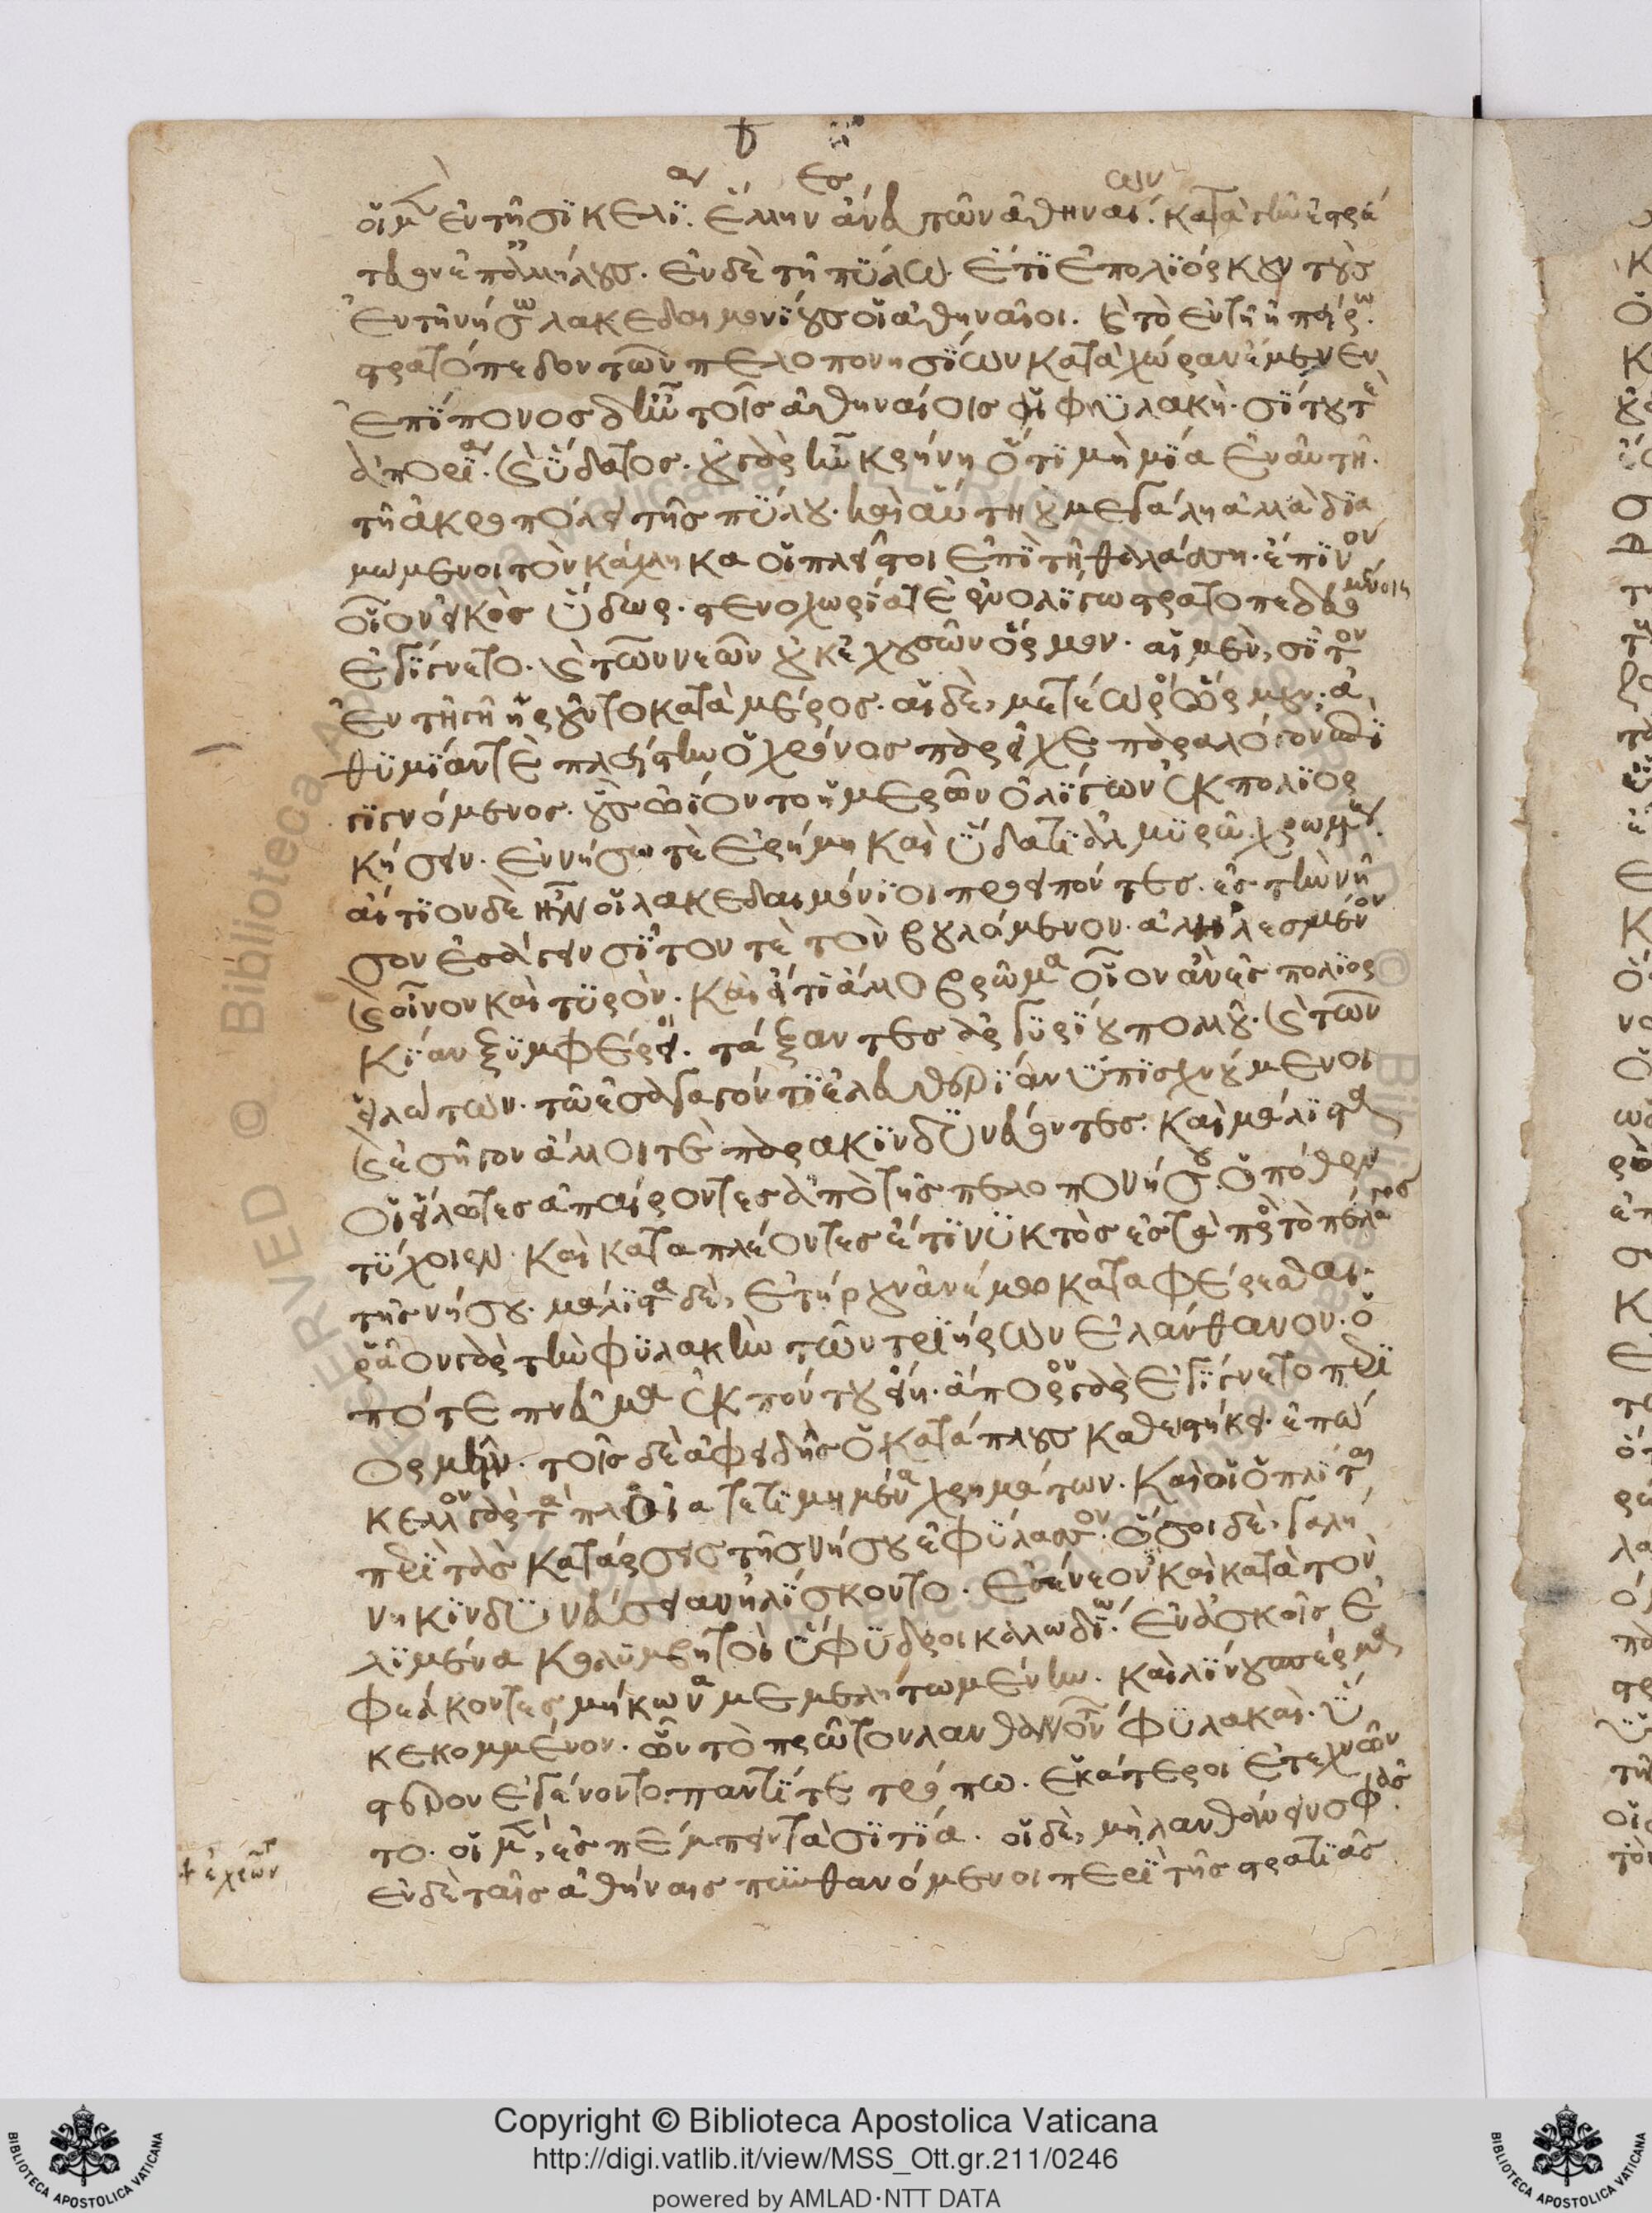 οἱ μὲν ἐν τῇ σϊκελΐαν. ἕλληνες ἄνευ τῶν ἀθηναίων. κατὰ γῆν ἐστρά
τευον ἐπ' ἀλλήλους. ἐν δὲ τῇ πΰλω. ἔτϊ ἐπολϊόρκουν τοὺς
ἐν τῇ νήσω λακεδαιμονΐους οἱ ἀθηναῖοι. καὶ τὸ ἐν τῇ ἠπείρω.
στρατόπεδον τῶν πελοπονησΐων κατὰ χώραν ἔμενεν
ἐπΐπονος δ' ἦν τοῖς ἀθηναίοις ἡ φϋλακὴ. σΐτου τὲ
ἀπορΐαν. καὶ ὕδατος. οὐ γὰρ ἦν κρήνη ὅτϊ μὴ μΐα ἐν αὐτῆ.
τῆ ἀκροπόλει τῆς πΰλου. καὶ αὕτη οὐ μεγάλη ἀλλὰ δϊα
μώμενοι τὸν κάχληκα οἱ πλεῖστοι ἐπὶ τῇ θαλάσση. ἔπϊνον
οἷον εἰκὸς ὕδωρ. στενοχωρΐα τὲ ἐν ὀλΐγω στρατοπεδευομένοις
ἐγΐγνετο. καὶ τῶν νεῶν οὐκ ἐχουσῶν ὅρμον. αἱ μὲν, σῖτον
ἐν τῇ γῇ ἡροῦντο κατὰ μέρος. αἱ δὲ, μετέωροι ὥρμουν. ἀ
θϋμΐαν τὲ πλείστην ὁ χρόνος παρεῖχε παρὰ λόγον ἐπϊ
γϊγνόμενος. οὓς ὤϊοντο ἡμερῶν ὀλΐγων ἐκπολϊορ
κήσειν. ἐν νήσω τὲ ἐρήμη καὶ ὕδατϊ ἁλμϋρῶ χρωμένους.
αἴτϊον δὲ ἦν οἱ λακεδαιμόνϊοι προειπόντες. ἐς τὴν νῆ
σον ἐσάγειν σῖτον τὲ τὸν βουλόμενον. ἀληλεσμένον
καὶ οἶνον καὶ τϋρὸν. καὶ εἴ τι ἄλλο βρῶμα οἷον ἂν ἐς πολϊορ
κΐαν ξϋμφέροι. τάξαντες ἀργϋρΐου πολλοῦ. καὶ τῶν
εἱλώτων. τῶ ἐσαγαγόντϊ ἐλευθερΐαν ὑπϊσχνούμενοι
καὶ ἐσῆγον ἄλλοι τὲ παρακϊνδϋνεύοντες. καὶ μάλϊστα
οἱ εἵλωτες ἀπαίροντες ἀπὸ τῆς πελοπονήσου. ὁπόθεν
τΰχοιεν. καὶ καταπλέοντες ἔτϊ νϋκτὸς ἐς τὰ πρὸς τὸ πέλαγος
τῆς νήσου. μάλϊστα δὲ, ἐτήρουν ἀνέμω καταφέρεσθαι.
ῥᾶον γὰρ τὴν φϋλακὴν τῶν τρϊήρων ἐλάνθανον. ὁ
πότε πνεῦμα ἐκ πόντου εἴη. ἄπορον γὰρ ἐγΐγνετο περϊ
ορμεῖν. τοῖς δὲ ἀφειδῆς ὁ κατάπλους καθειστήκει. ἐπώ
κελλον γὰρ τὰ πλοῖα τετϊμημένα χρημάτων. καὶ οἱ ὁπλῖται
περϊ τὰς κατάρσεις τῆς νήσου ἐφΰλασσον. ὅσοι δὲ, γαλή
νη κϊνδϋνεύσειαν ἡλΐσκοντο. ἐσένεον καὶ κατὰ τὸν
λϊμένα κολϋμβητοὶ ὕφϋδροι καλωδΐω. ἐν ἀσκοῖς ἐ
φέλκοντες μήκωνα μεμελϊτωμένην. καὶ λΐνου σπέρμα
κεκομμένον. ὧν τὸ πρῶτον λανθανόντων φϋλακαὶ. ὕ
στερον ἐγένοντο παντΐ τε τρόπω. ἑκάτεροι ἐτεχνῶν
το. οἱ μὲν, ἐς πέμπειν τὰ σϊτΐα. οἱ δὲ, μὴ λανθάνειν σφᾶς.
ἐν δὲ ταῖς ἀθήναις πϋνθανόμενοι περὶ τῆς στρατϊᾶς
+ ἐχρῶντ
Copyright © Biblioteca Apostolica Vaticana
http://digi.vatlib.it/view/MSS_Ott.gr.211/0246
powered by AMLAD·NTT DATA
BIBLIOTECA APOSTOLICA VATICANA
BIBLIOTECA APOSTOLICA VATICANA